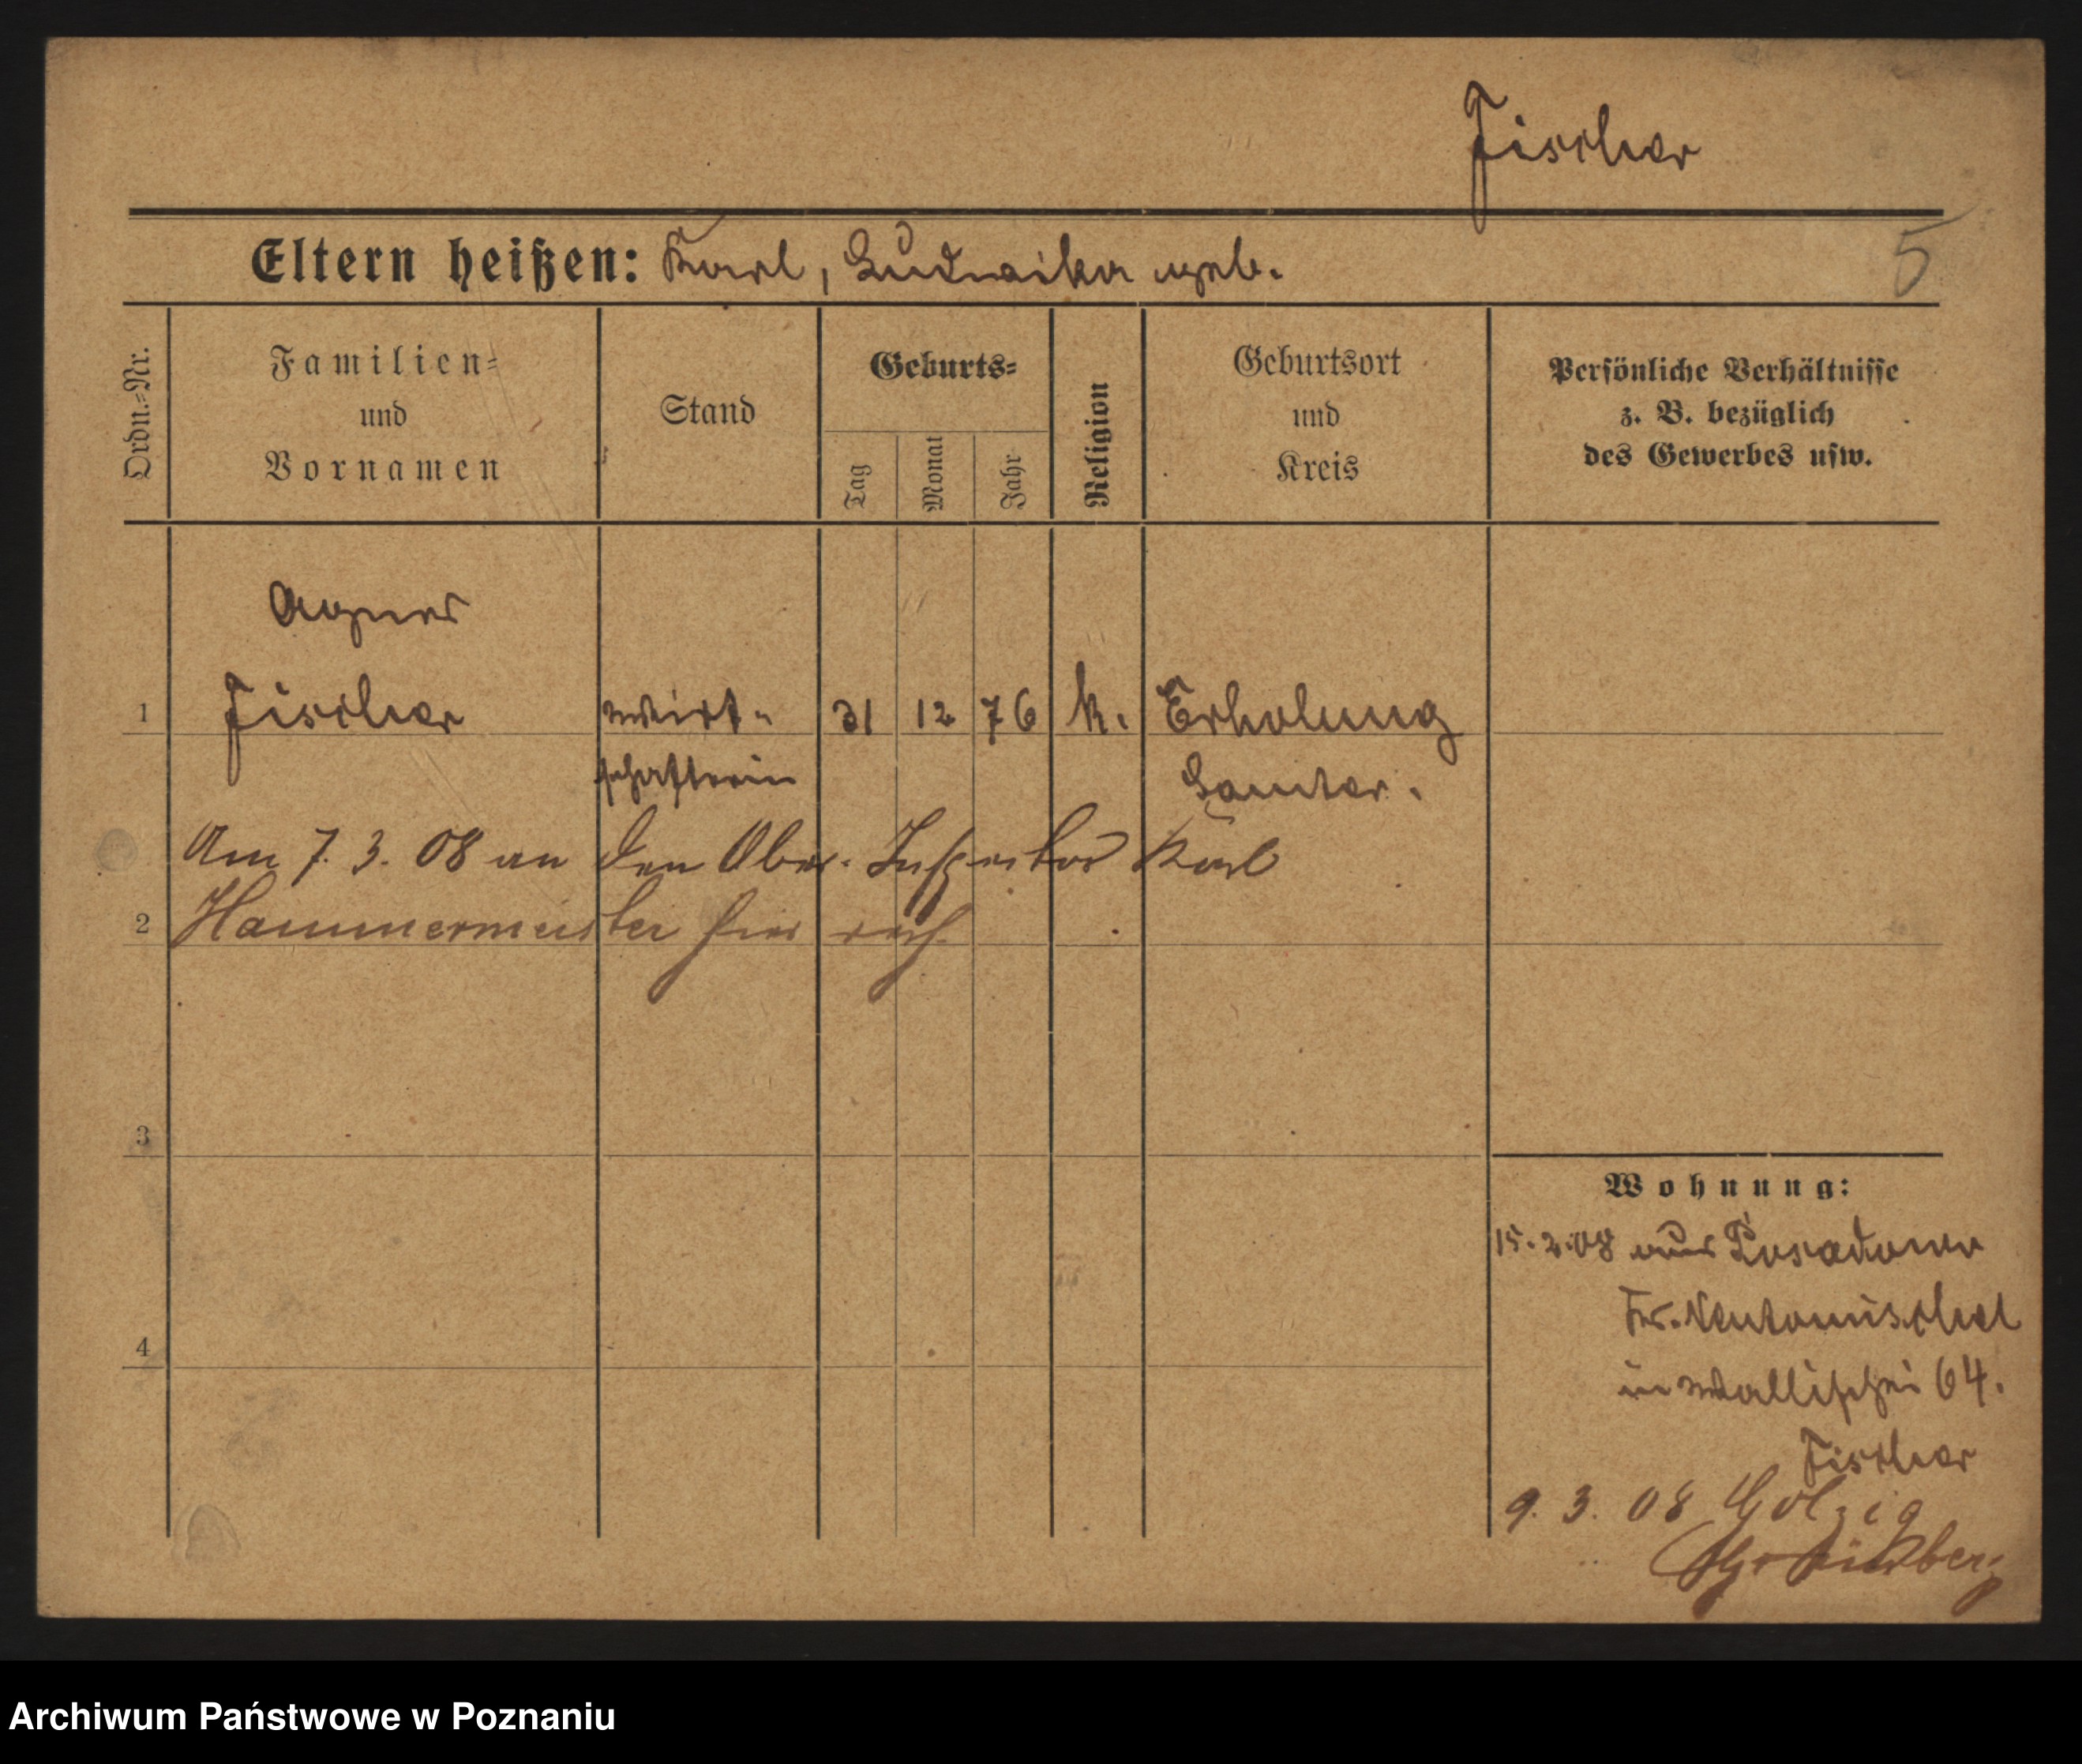 Fischer
Eltern heißen: Karl, Ludwika geb.
5
Ordn.=Nr.
Familien=
und
Vornamen
Stand
Geburts=
Tag
Monat
Jahr
Religion
Geburtsort
und
Kreis
Persönliche Verhältnisse
z. B. bezüglich
des Gewerbes usw.
Agnes
1 Fischer Wirt- 31 12 76 k. Erholung
schafterin Samter.
Am 7. 3. 08 an den Ober-Inspektor Karl
2 Hammermeister hier verh.
3
4
Wohnung:
15.2.08 aus Posadowo
Kr. Neutomischel
in Wallischei 64.
Fischer
9. 3. 08 Golzig
Grünberg
Archiwum Państwowe w Poznaniu